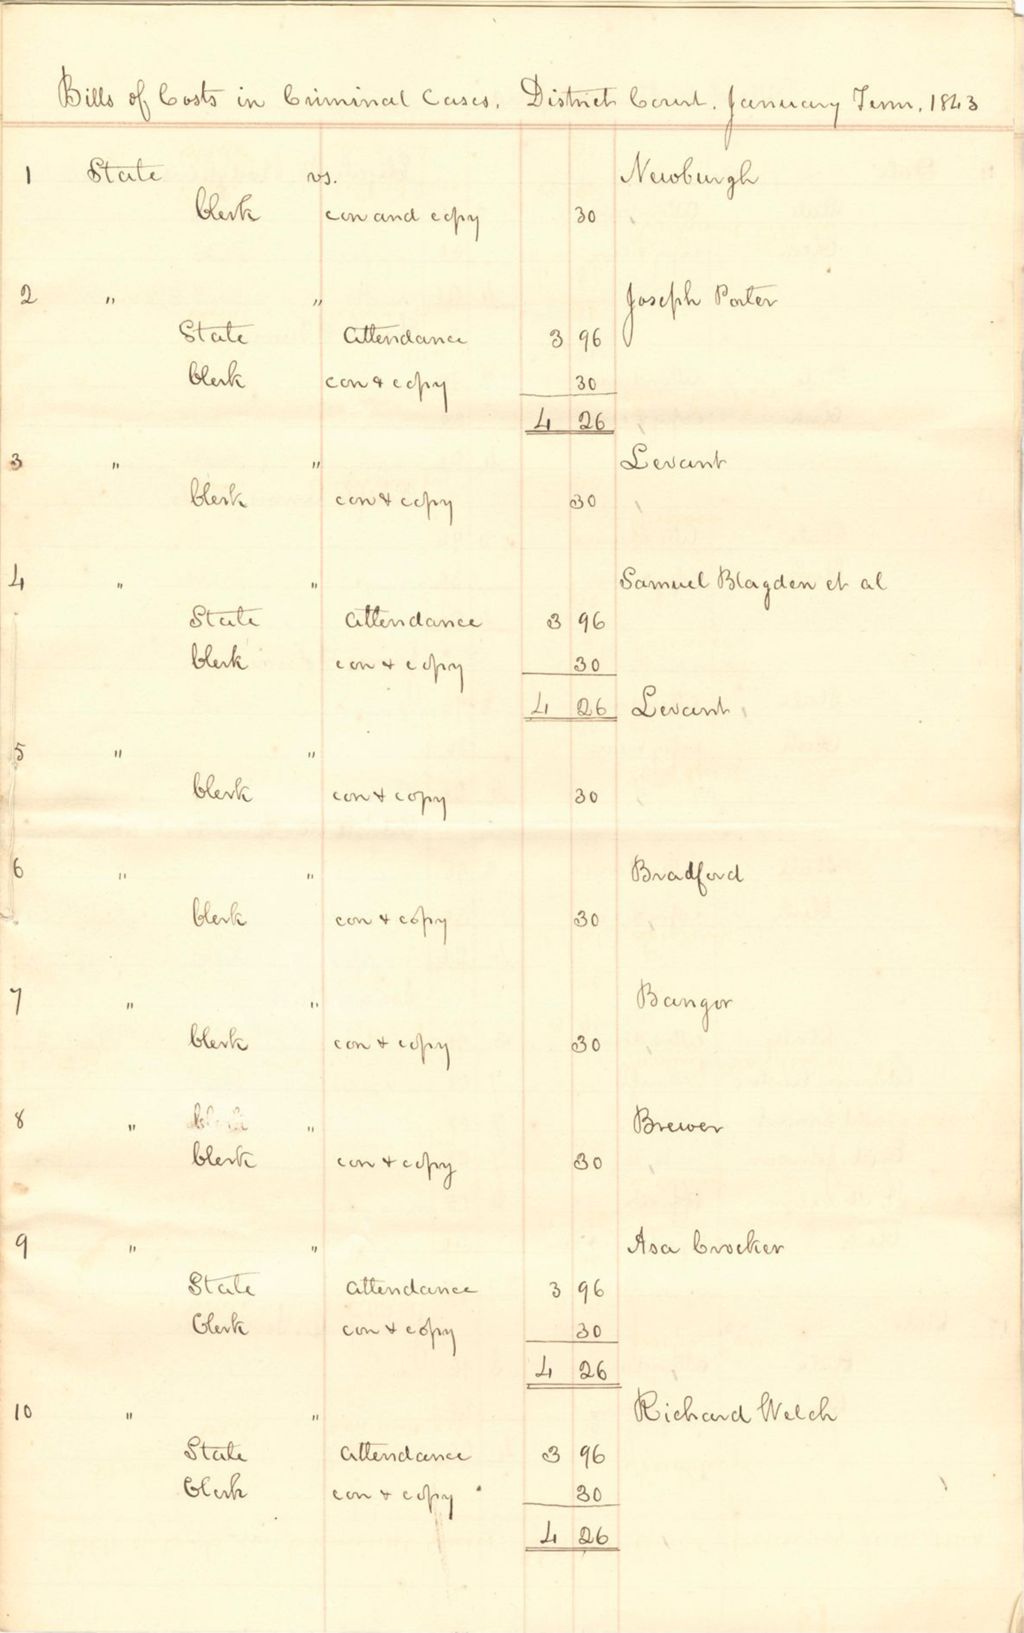 Bills of Costs in Criminal Cases. District Court. January Term, 1843
1 State vs. Newburgh
Clerk con and copy 30
2 " " Joseph Porter
State Attendance 3 96
Clerk con & copy 30
4 26
3 " " Levant
Clerk con & copy 30
4 " " Samuel Blagden et al
State Attendance 3 96
Clerk con & copy 30
4 26 Levant
5 " "
Clerk con & copy 30
6 " " Bradford
Clerk con & copy 30
7 " " Bangor
Clerk con & copy 30
8 " " Brewer
Clerk con & copy 30
9 " " Asa Crocker
State Attendance 3 96
Clerk con & copy 30
4 26
10 " " Richard Welch
State Attendance 3 96
Clerk con & copy 30
4 26